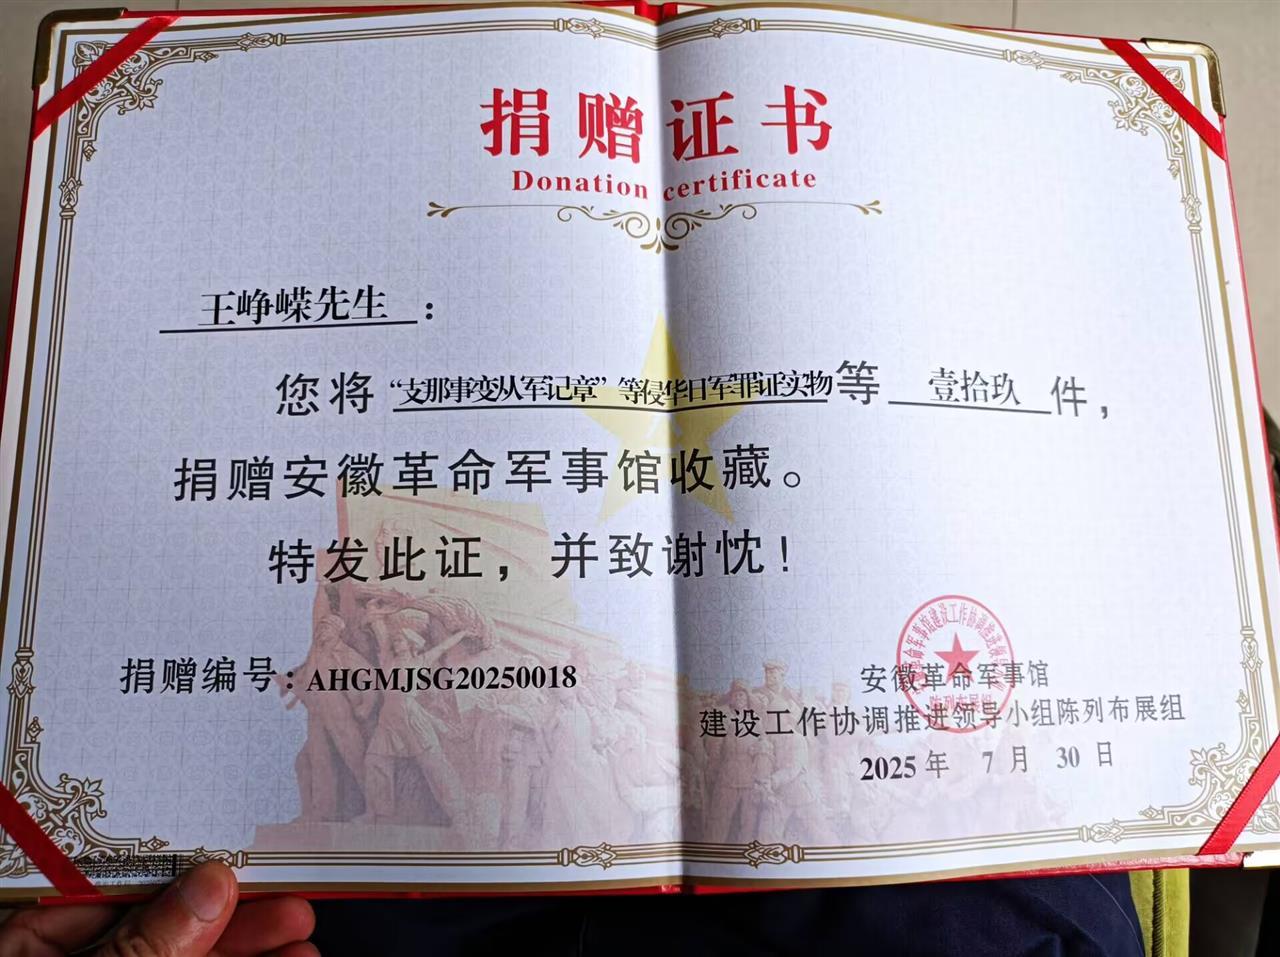 捐赠证书
Donation certificate
王峥嵘先生：
您将“支那事变从军记章”等侵华日军罪证实物等壹拾玖件，
捐赠安徽革命军事馆收藏。
特发此证，并致谢忱！
捐赠编号：AHGMJSG20250018
安徽革命军事馆
建设工作协调推进领导小组陈列布展组
2025年 7月 30日
陈列布展组